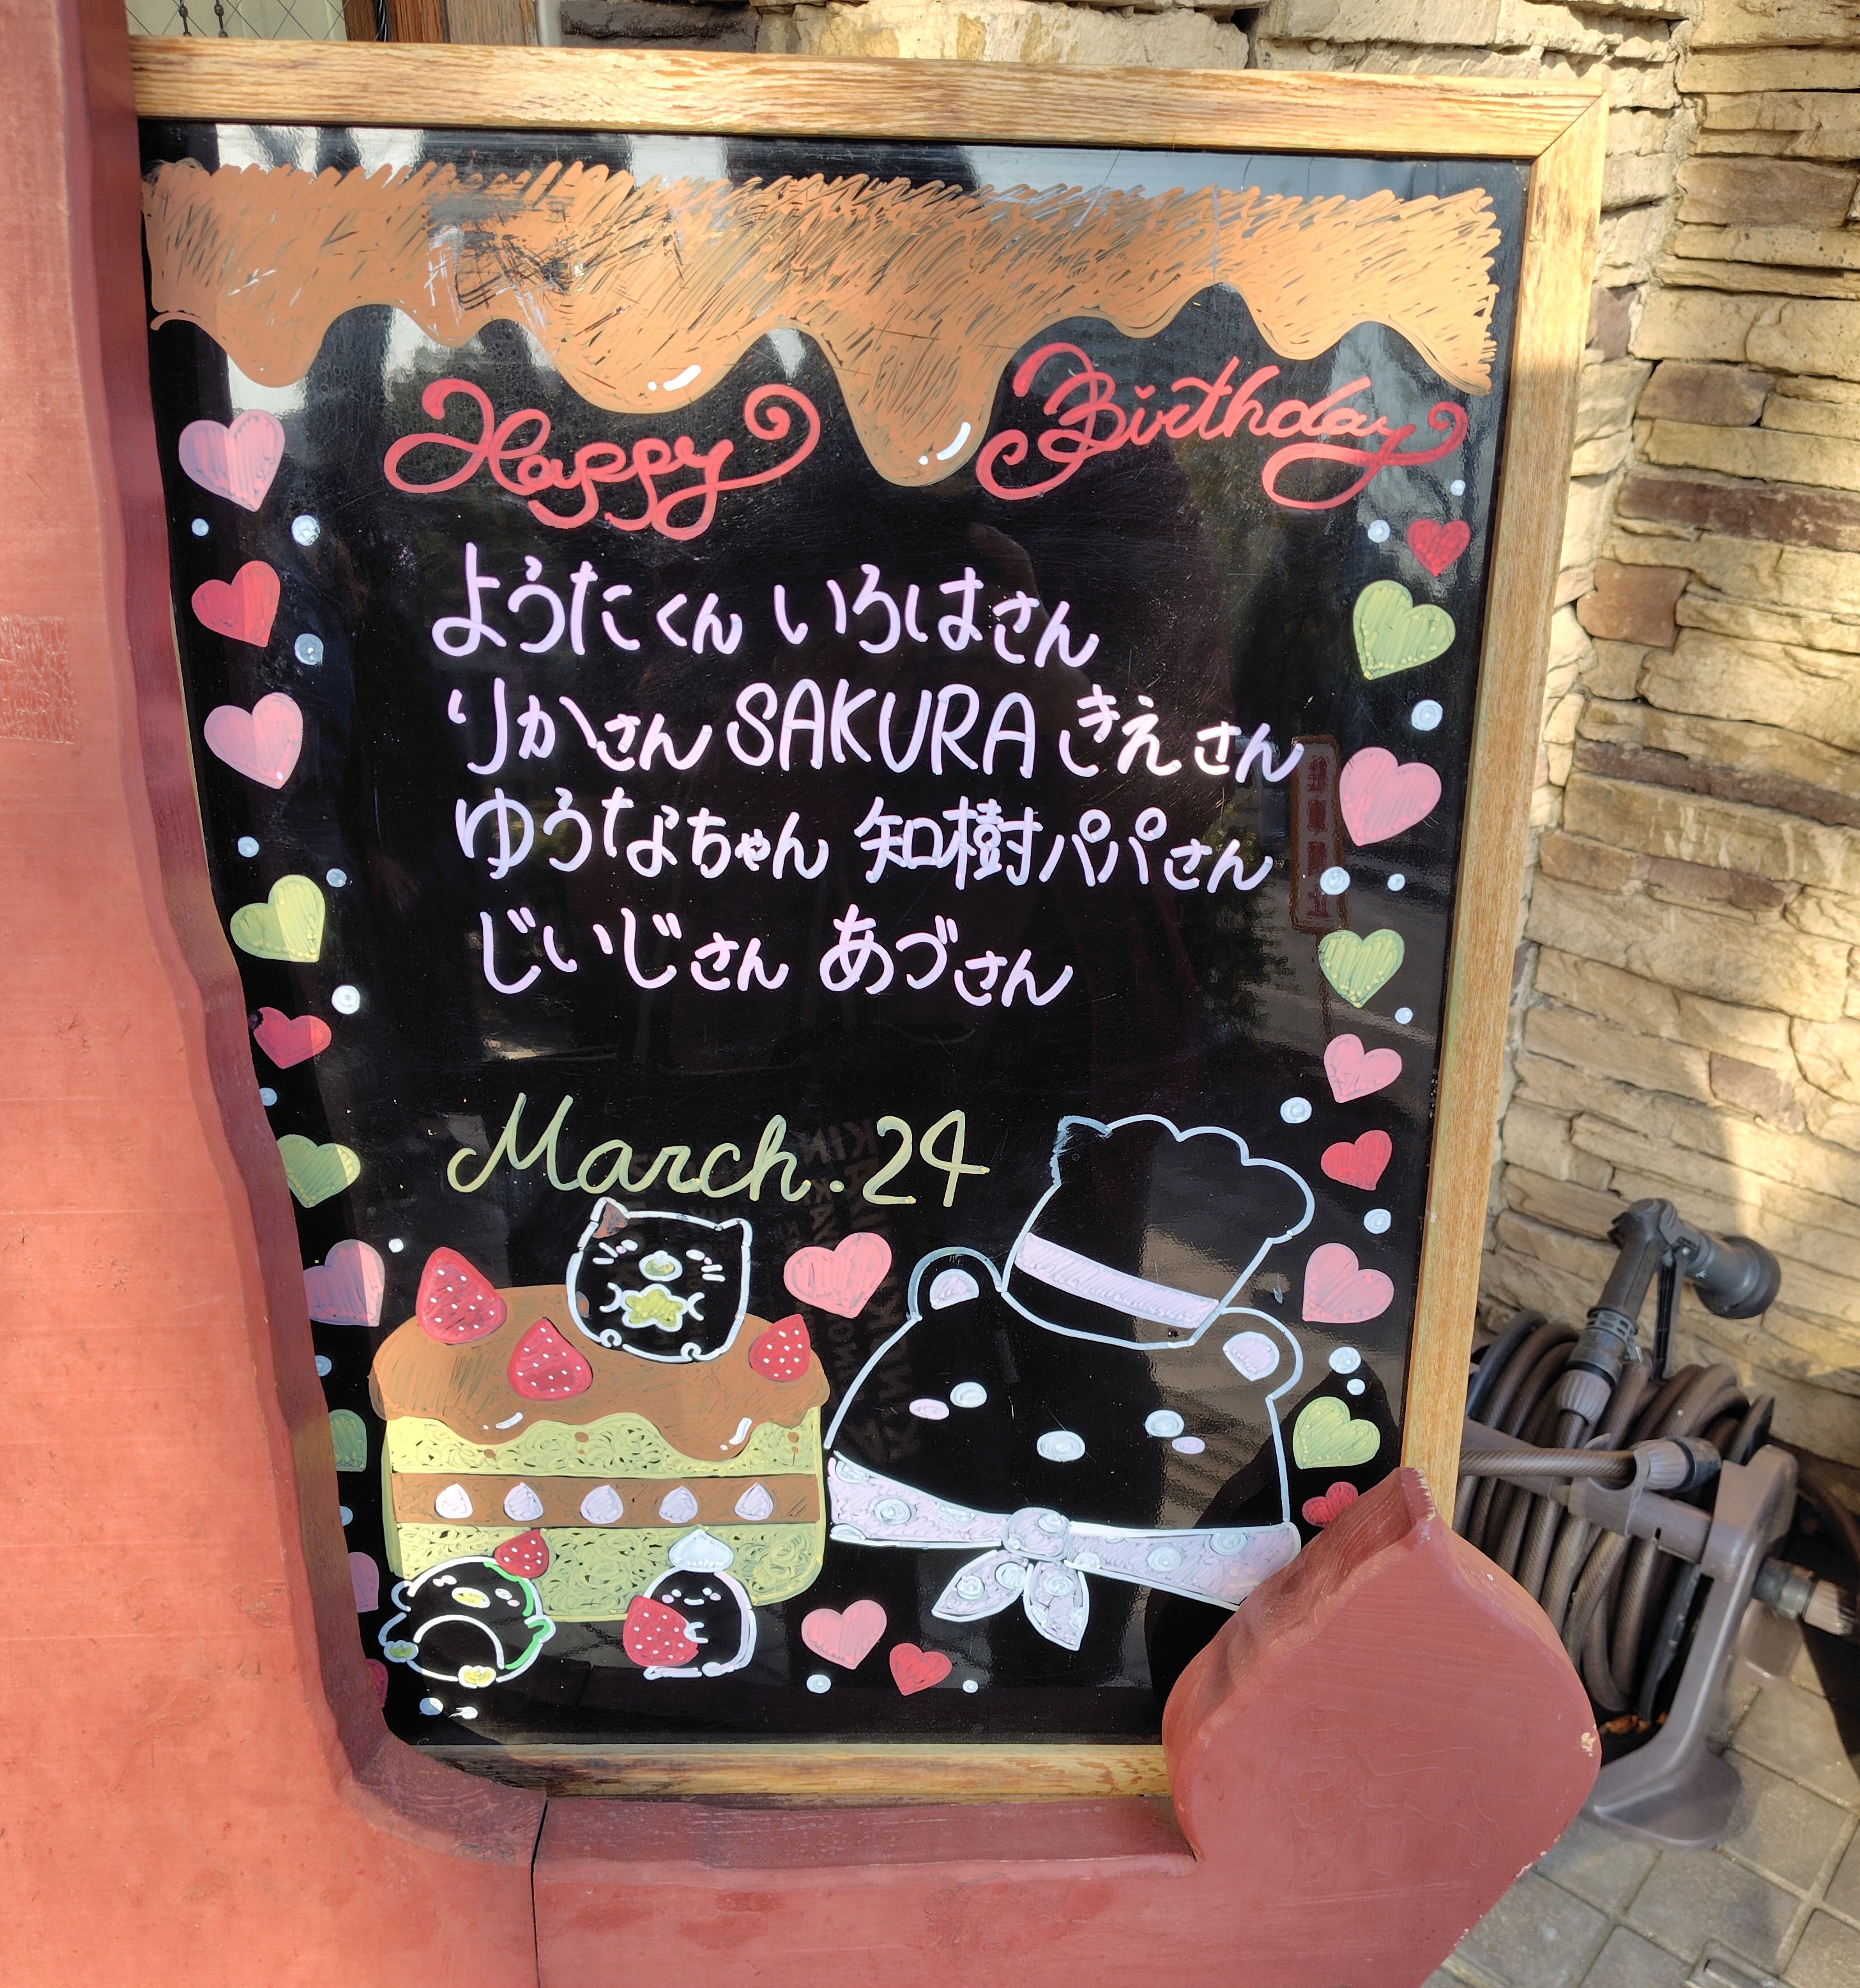 Happy Birthday
ようたくん いろはさん
りかさん SAKURA きえさん
ゆうなちゃん 知樹パパさん
じいじさん あづさん
March.24